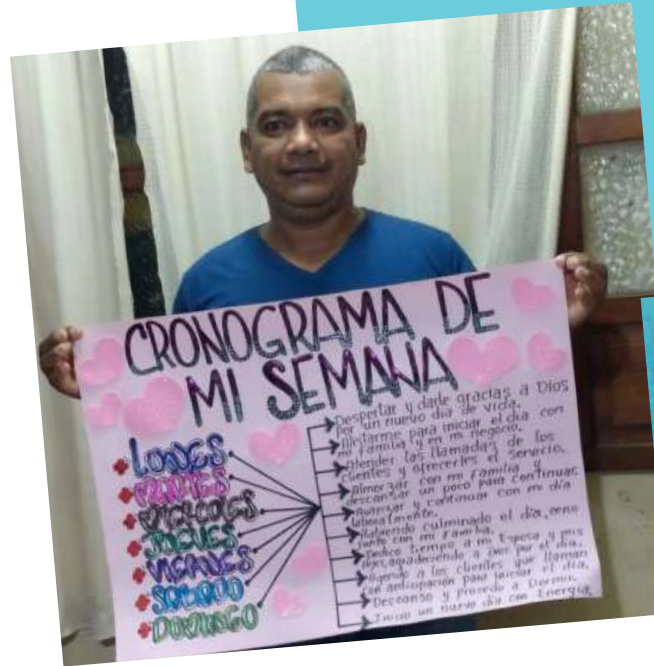 CRONOGRAMA DE
MI SEMANA
LUNES
MARTES
MIERCOLES
JUEVES
VIERNES
SABADO
DOMINGO
Despertar y darle gracias a Dios
por un nuevo dia de vida.
Alistarme para iniciar el dia con
mi familia y en mi negocio.
Atender las llamadas de los
clientes y ofrecerles el servicio.
Almorzar con mi familia y
descansar un poco para continuar.
y continuar con mi día
laboralmente.
Habiendo culminado el día, ceno
junto con mi familia.
Dedico tiempo a mi Esposa y mis
hijos, agradeciendo a Dios por el día.
Agendo a los clientes que llaman
con anticipación para iniciar el día.
Descanso y procedo a Dormir.
Inicio un nuevo dia con Energia.